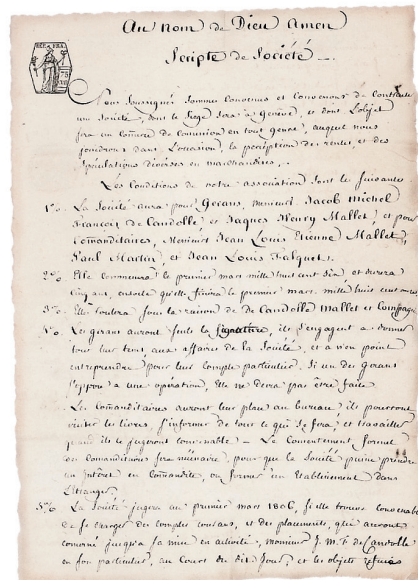 Au nom de Dieu Amen
Scripte de Société
REP. FRA.
75
Nous soussignés sommes convenus et convenons de contracter
une Société, dont le siège sera à Genève, et dont l'objet
sera un comerce de comission en tout genre, auquel nous
joindrons dans l'occasion, la perception des rentes, et des
spéculations diverses en marchandises,
Les Conditions de notre association sont les suivantes
1º. La Société aura pour Gerans, messieurs Jacob Michel
François de Candolle, et Jaques Henry Mallet, et pour
comanditaires, Messieurs Jean Louis Etienne Mallet
Paul Martin, et Jean Louis Falquet.
2º. Elle comencera le premier mars mille huit cent six, et durera
cinq ans, ensorte qu'elle finira le premier mars mille huit cent onze
3º. Elle sous la raison de De Candolle Mallet et Compagnie
4º. Les gerans auront seuls la signature, ils s'engagent à donner
tout leur tems aux affaires de la Société, et à n'en point
entreprendre pour leur compte particulier. Si un des Gerans
s'oppose à une opération, Elle ne devra pas être faite.
Les comanditaires auront leur place au bureau, ils pourront
visiter les livres, s'informer de tout ce qui se fera, et travailler
quand ils le jugeront convenable - Le consentement formel
des comanditaires sera nécessaire, pour que la Société puisse prendre
un intérêt en comandite, ou former un Etablissement dans
l'étranger.
5º. La Société jugera au premier mars 1806, si elle trouve convenable
de se charger des comptes courans, et des placements, que auront
concerné jusqu'à sa mise en activité, monsieur J. M. F. de Candolle
en son particulier, au cours du dit jour, et les objets refusés